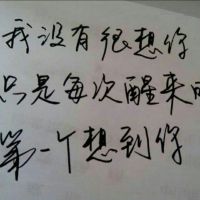 我没有很想你
只是每次醒来时
第一个想到你